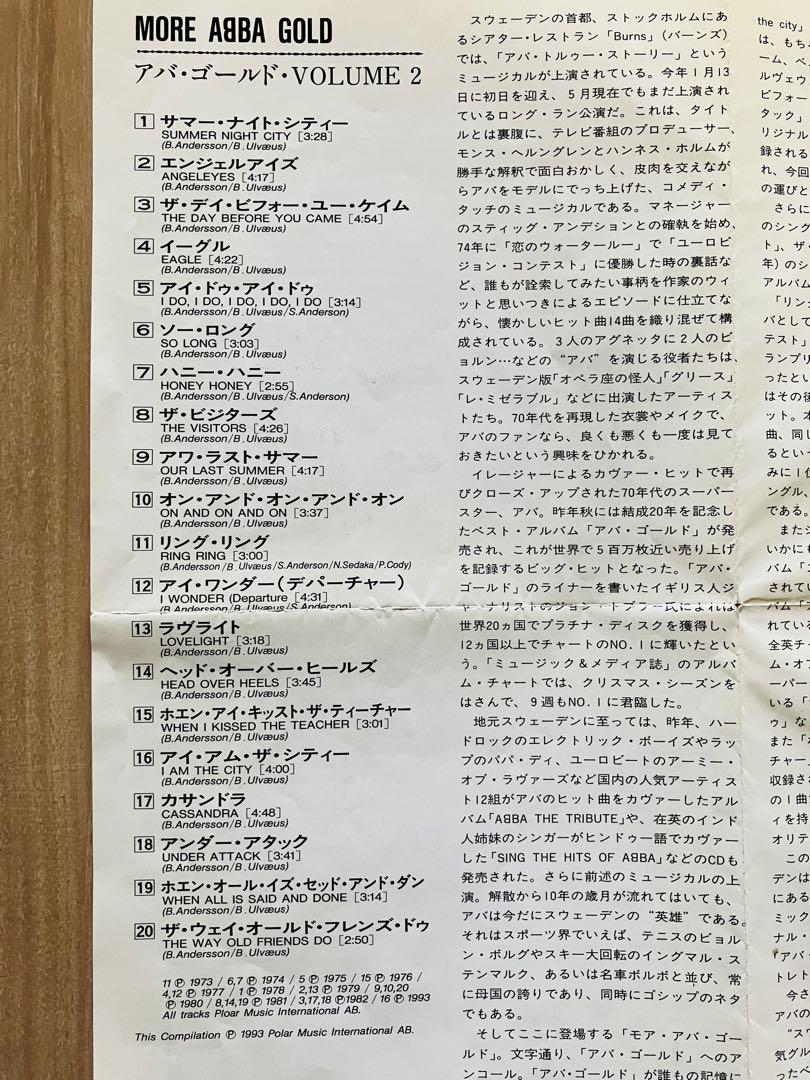 MORE ABBA GOLD
アバ・ゴールド・VOLUME 2
1 サマー・ナイト・シティー
SUMMER NIGHT CITY [3:28]
(B.Andersson/B.Ulvæus)
2 エンジェルアイズ
ANGELEYES [4:17]
(B.Andersson/B.Ulvæus)
3 ザ・デイ・ビフォー・ユー・ケイム
THE DAY BEFORE YOU CAME [4:54]
(B.Andersson/B.Ulvæus)
4 イーグル
EAGLE [4:22]
(B.Andersson/B.Ulvæus)
5 アイ・ドゥ・アイ・ドゥ
I DO, I DO, I DO, I DO, I DO [3:14]
(B.Andersson/B.Ulvæus/S.Anderson)
6 ソー・ロング
SO LONG [3:03]
(B.Andersson/B.Ulvæus)
7 ハニー・ハニー
HONEY HONEY [2:55]
(B.Andersson/B.Ulvæus/S.Anderson)
8 ザ・ビジターズ
THE VISITORS [4:26]
(B.Andersson/B.Ulvæus)
9 アワ・ラスト・サマー
OUR LAST SUMMER [4:17]
(B.Andersson/B.Ulvæus)
10 オン・アンド・オン・アンド・オン
ON AND ON AND ON [3:37]
(B.Andersson/B.Ulvæus)
11 リング・リング
RING RING [3:00]
(B.Andersson/B.Ulvæus/S.Anderson/N.Sedaka/P.Cody)
12 アイ・ワンダー(デパーチャー)
I WONDER (Departure [4:31]
(B.Andersson/B.Ulvæus/S.Anderson)
13 ラヴライト
LOVELIGHT [3:18]
(B.Andersson/B.Ulvæus)
14 ヘッド・オーバー・ヒールズ
HEAD OVER HEELS [3:45]
(B.Andersson/B.Ulvæus)
15 ホエン・アイ・キッスト・ザ・ティーチャー
WHEN I KISSED THE TEACHER [3:01]
(B.Andersson/B.Ulvæus)
16 アイ・アム・ザ・シティー
I AM THE CITY [4:00]
(B.Andersson/B.Ulvæus)
17 カサンドラ
CASSANDRA [4:48]
(B.Andersson/B.Ulvæus)
18 アンダー・アタック
UNDER ATTACK [3:41]
(B.Andersson/B.Ulvæus)
19 ホエン・オール・イズ・セッド・アンド・ダン
WHEN ALL IS SAID AND DONE [3:14]
(B.Andersson/B.Ulvæus)
20 ザ・ウェイ・オールド・フレンズ・ドゥ
THE WAY OLD FRIENDS DO [2:50]
(B.Andersson/B.Ulvæus)
11 Ⓟ 1973 / 6,7 Ⓟ 1974 / 5 Ⓟ 1975 / 15 Ⓟ 1976 /
4,12 Ⓟ 1977 / 1 Ⓟ 1978 / 2,13 Ⓟ 1979 / 9,10,20
Ⓟ 1980 / 8,14,19 Ⓟ 1981 / 3,17,18 Ⓟ1982 / 16 Ⓟ 1993
All tracks Ploar Music International AB.
This Compilation Ⓟ 1993 Polar Music International AB.
スウェーデンの首都、ストックホルムにあ
るシアター・レストラン「Burns」(バーンズ)
では、「アバ・トルゥー・ストーリー」という
ミュージカルが上演されている。今年1月13
日に初日を迎え、5月現在でもまだ上演され
ているロング・ラン公演だ。これは、タイト
ルとは裏腹に、テレビ番組のプロデューサー、
モンス・ヘルングレンとハンネス・ホルムが
勝手な解釈で面白おかしく、皮肉を交えなが
らアバをモデルにでっち上げた、コメディ・
タッチのミュージカルである。マネージャー
のスティッグ・アンデションとの確執を始め、
74年に「恋のウォータールー」で「ユーロビ
ジョン・コンテスト」に優勝した時の裏話な
ど、誰もが詮索してみたい事柄を作家のウィ
ットと思いつきによるエピソードに仕立てな
がら、懐かしいヒット曲14曲を織り混ぜて構
成されている。3人のアグネッタに2人のビ
ョルン…などの“アバ”を演じる役者たちは、
スウェーデン版「オペラ座の怪人」「グリース」
「レ・ミゼラブル」などに出演したアーティス
トたち。70年代を再現した衣裳やメイクで、
アバのファンなら、良くも悪くも一度は見て
おきたいという興味をひかれる。
イレージャーによるカヴァー・ヒットで再
びクローズ・アップされた70年代のスーパー
スター、アバ。昨年秋には結成20年を記念し
たベスト・アルバム「アバ・ゴールド」が発
売され、これが世界で5百万枚近い売り上げ
を記録するビッグ・ヒットとなった。「アバ・
ゴールド」のライナーを書いたイギリス人ジ
ャーナリストのジョン・トブラー氏によれば
世界20ヵ国でプラチナ・ディスクを獲得し、
12ヵ国以上でチャートのNO.1に輝いたとい
う。「ミュージック&メディア誌」のアルバ
ム・チャートでは、クリスマス・シーズンを
はさんで、9週もNO.1に君臨した。
地元スウェーデンに至っては、昨年、ハー
ドロックのエレクトリック・ボーイズやラッ
プのパパ・ディ、ユーロビートのアーミー・
オブ・ラヴァーズなど国内の人気アーティス
ト12組がアバのヒット曲をカヴァーしたアル
バム「ABBA THE TRIBUTE」や、在英のインド
人姉妹のシンガーがヒンドゥー語でカヴァー
した「SING THE HITS OF ABBA」などのCDも
発売された。さらに前述のミュージカルの上
演。解散から10年の歳月が流れてはいても、
アバは今だにスウェーデンの“英雄”である。
それはスポーツ界でいえば、テニスのビョル
ン・ボルグやスキー大回転のイングマル・ス
テンマルク、あるいは名車ボルボと並び、常
に母国の誇りであり、同時にゴシップのネタ
でもある。
そしてここに登場する「モア・アバ・ゴー
ルド」。文字通り、「アバ・ゴールド」へのア
ンコール。「アバ・ゴールド」が誰もの記憶に